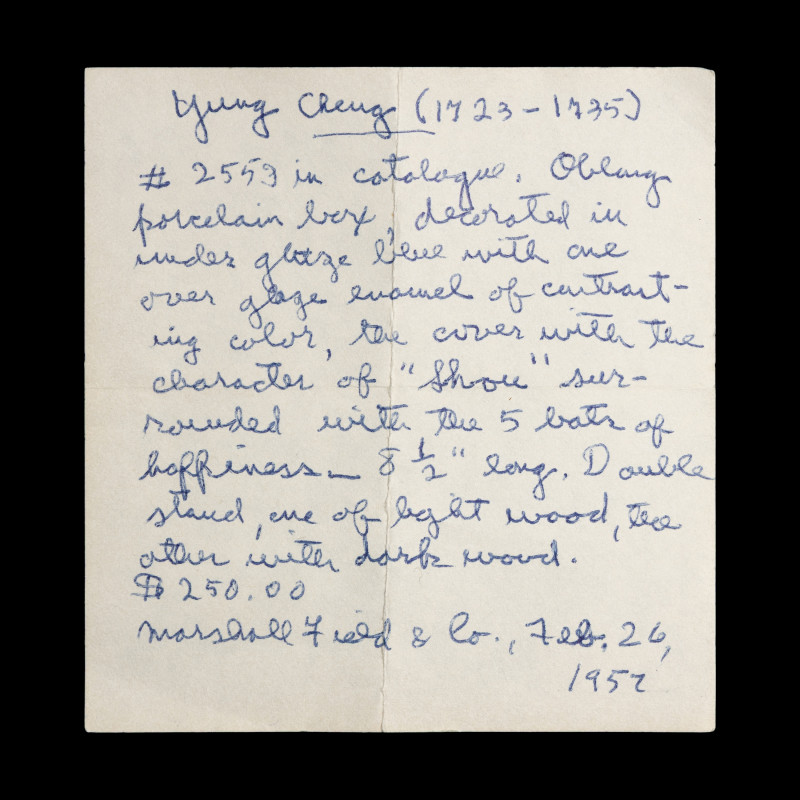 Yung Cheng (1723-1735)
# 2553 in catalogue. Oblung
porcelain box, decorated in
under glaze blue with one
over glaze enamel of contrast-
ing color, the cover with the
character of "Shou" sur-
rounded with the 5 bats of
happiness_ 8 1/2" long. Double
stand, one of light wood, the
other with dark wood.
$250.00
Marshall Field & Co., Feb. 26,
1957